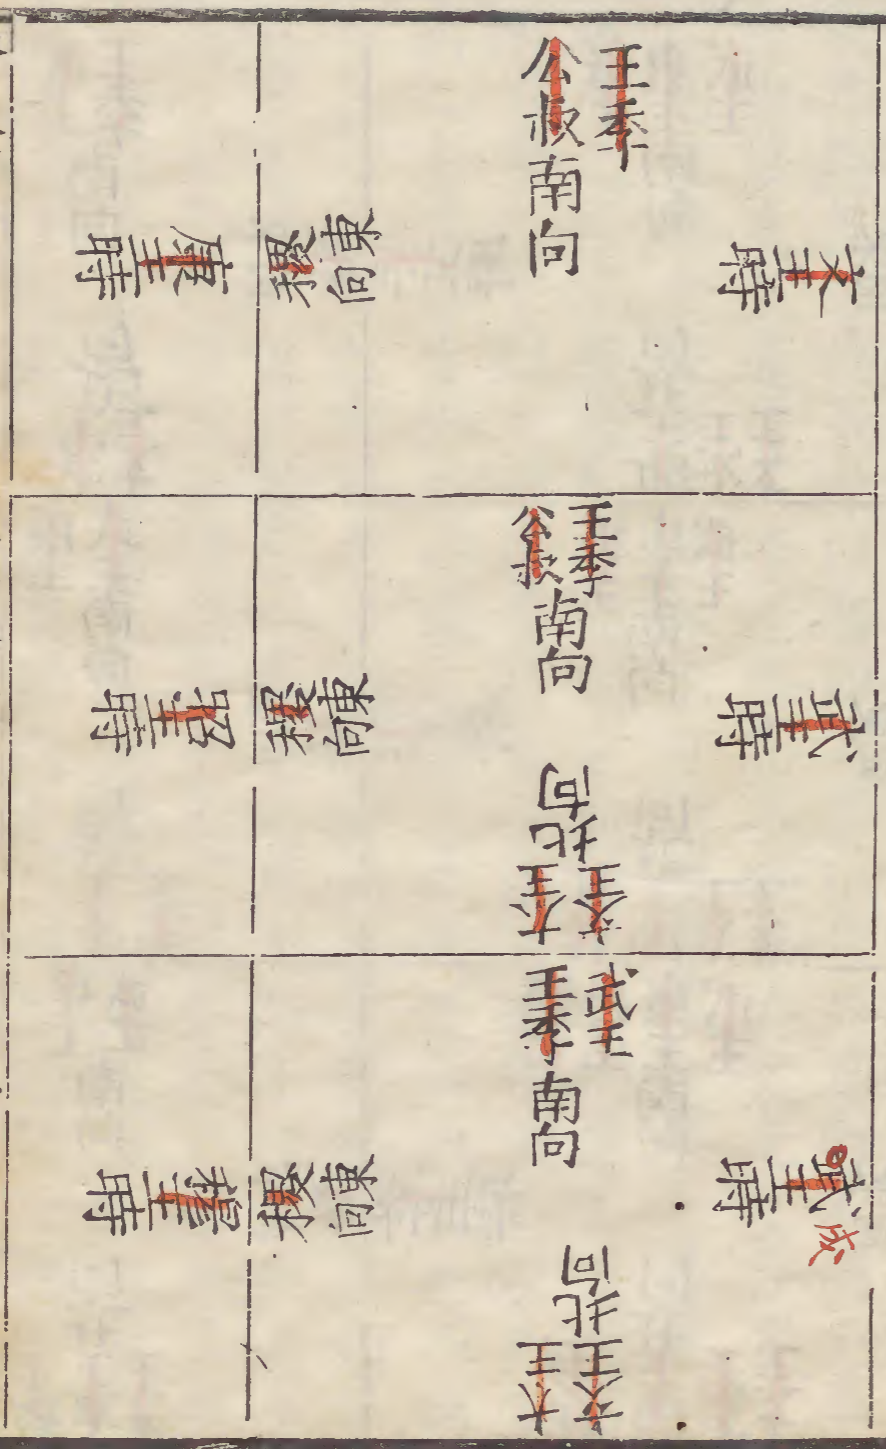 文王時
王季
公叔
南向
東向
稷
康王時
武王時
王季
公叔
南向
文王
大王
北向
東向
稷
昭王時
武王時
成
武王
王季
南向
文王
大王
北向
東向
稷
穆王時